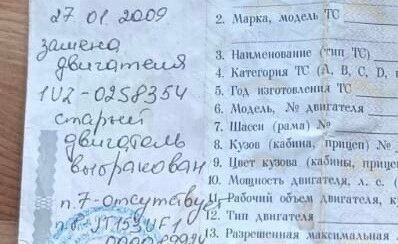 27 01 2009
замена
двигателя
1UZ-0258354
старый
двигатель
выбракован
п.7-отсутствует
JT153UF1
2. Марка, модель ТС
3. Наименование (тип ТС)
4. Категория ТС (А, В, С, D,
5. Год изготовления ТС
6. Модель, № двигателя
7. Шасси (рама) №
8. Кузов (кабина, прицеп) №
9. Цвет кузова (кабины, прице
10. Мощность двигателя, л. с. (
11. Рабочий объем двигателя, к
12. Тип двигателя
13. Разрешенная максимальная